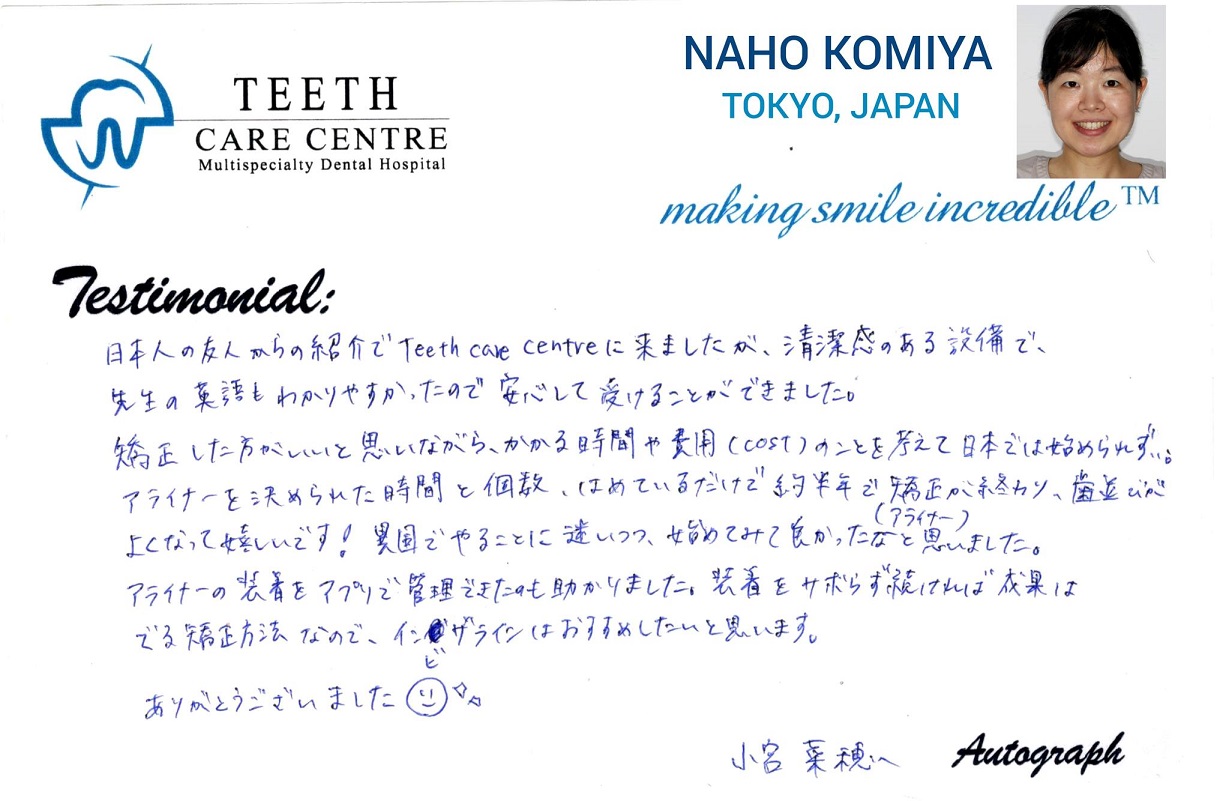 TEETH
CARE CENTRE
Multispecialty Dental Hospital
NAHO KOMIYA
TOKYO, JAPAN
making smile incredible™
Testimonial:
日本人の友人からの紹介でTeeth care centreに来ましたが、清潔感のある設備で、
先生の英語もわかりやすかったので安心して受けることができました。
矯正した方がいいと思いながら、かかる時間や費用(cost)のことを考えて日本では始められず…。
アライナーを決められた時間と個数、はめているだけで約半年で矯正が終わり、歯並びが
よくなって嬉しいです！異国でやることに迷いつつ、始めてみて良かったなと思いました。
(アライナー)
アライナーの装着をアプリで管理できたのも助かりました。装着をサボらず続ければ成果は
でる矯正方法なので、インビザラインはおすすめしたいと思います。
ありがとうございました
小宮 菜穂
Autograph